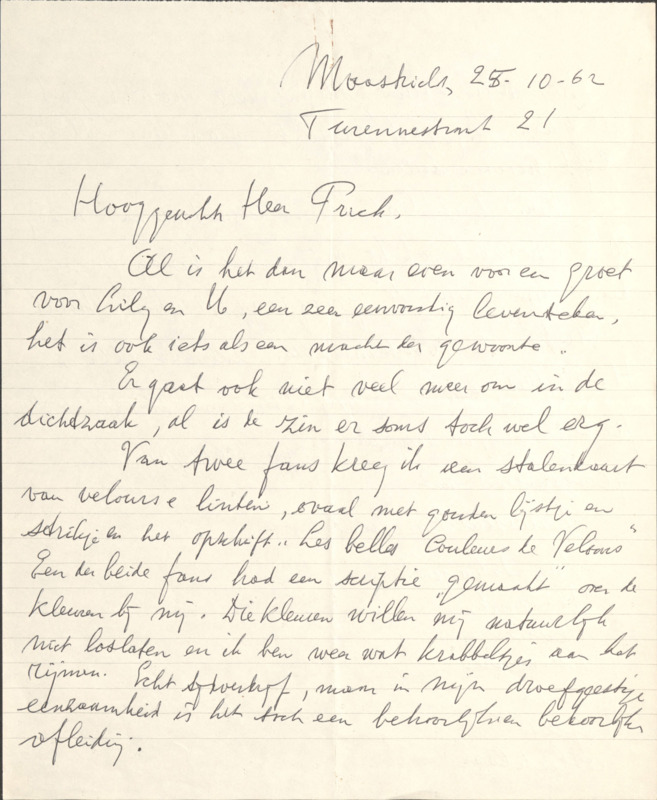 Maastricht, 25-10-62
Turennestraat 21
Hooggeachte Heer Prick,
Al is het dan maar even voor een groet
voor Lily en U, een zeer eenvoudig levensteken,
het is ook iets als een macht der gewoonte.
Er gaat ook niet veel meer om in de
dichtzaak, al is de zin er soms toch wel erg.
Van twee fans kreeg ik een stalenkaart
van velours linten, ovaal met gouden lijstje en
strikje en het opschrift "Les belles Couleurs de Velours"
Een der beide fans had een scriptie "gemaakt" over de
kleuren bij mij. Die kleuren willen mij natuurlijk
niet loslaten en ik ben weer wat krabbeltjes aan het
rijmen. Echt tijdverdrijf, maar in mijn droefgeestige
eenzaamheid is het toch een behoorlijk en bekoorlijke
afleiding.